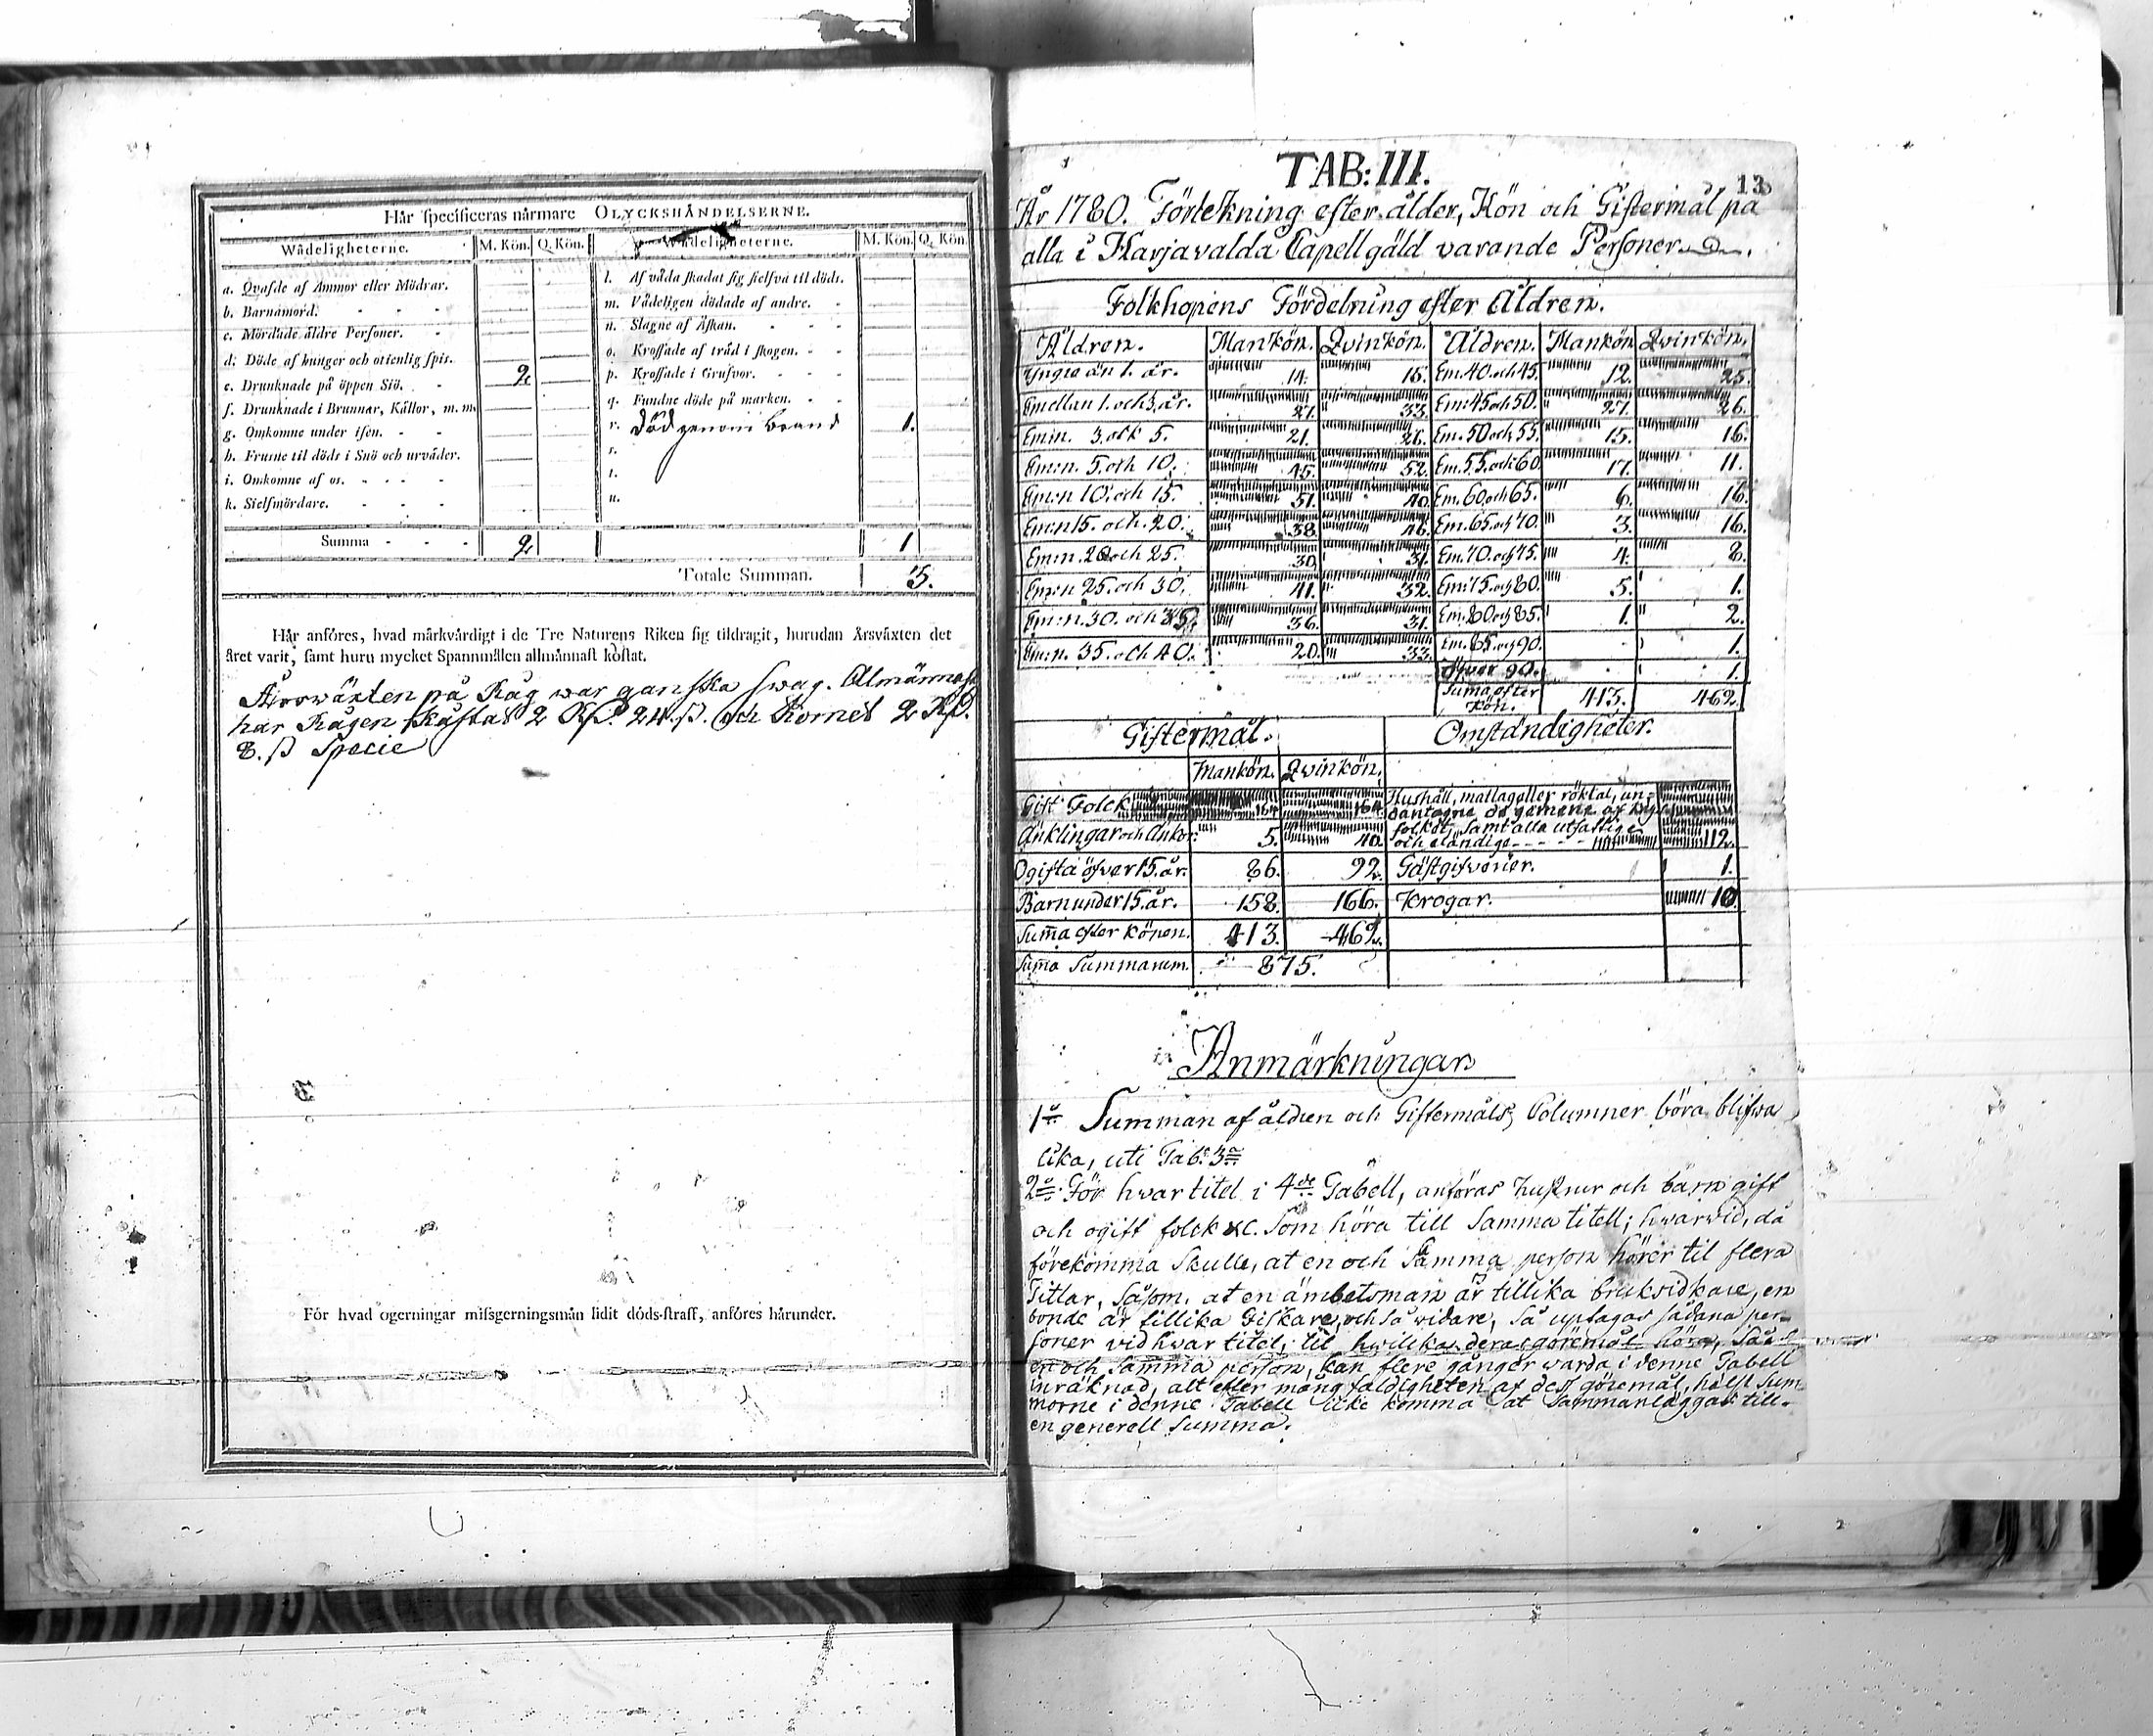 Här specificeras närmare OLYCKSHÄNDELSERNE.
Wådeligheterne. M. Kön. Q. Kön. Wådeligheterne. M. Kön. Q. Kön.
a. Qvafde af Ammor eller Mödrar.
b. Barnamord. - - -
c. Mördade äldre Personer. -
d. Döde af hunger och otienlig spis.
e. Drunknade på öppen Siö. - 2
f. Drunknade i Brunnar, Källor, m. m.
g. Omkomne under isen. - -
h. Frusne til döds i Snö och urväder.
i. Omkomne af os. - - - -
k. Sielfmördare. - - -
Summa - - - 2
l. Af våda skadat sig sielfva til döds.
m. Vådeligen dödade af andre. -
n. Slagne af Åskan. - - -
o. Krossade af träd i skogen. - -
p. Krossade i Grufvor. - - -
q. Fundne döde på marken. - -
r. död genom brand 1.
s.
t.
u.
1
Totale Summan. 3.
Här anföres, hvad märkvärdigt i de Tre Naturens Riken sig tildragit, hurudan Årsväxten det
året varit, samt huru mycket Spannmålen allmännast kostat.
Årswäxten på Råg war ganska swag. Almännast
har Rågen kåstat 2 Rd. 24 ß. och Kornet 2 Rd.
8. ß Specie
För hvad ogerningar missgerningsmän lidit döds-straff, anföres härunder.
TAB: III.
13
År 1780. Förtekning efter ålder, Kön och Giftermål på
alla i Harjavalda Capellgäld varande Personer.
Folkhopens Fördelning efter Åldren.
Åldren. Mankön. Qvinkön. Åldren. Mankön. Qvinkön.
Yngre än 1. år. 14. 15. Em. 40. och 45. 12. 25.
Emellan 1. och 3. år. 27. 33. Em: 45 och 50. 27. 26.
Em:n. 3. och 5. 21. 26. Em. 50 och 55. 15. 16.
Em:n. 5. och 10. 45. 52. Em. 55. och 60. 17. 11.
Em:n 10. och 15. 51. 40. Em. 60 och 65. 6. 16.
Em:n 15. och. 20. 38. 46. Em. 65. och 70. 3. 16.
Em:n. 20 och 25. 30. 31. Em. 70. och 75. 4. 8.
Em:n 25. och 30. 41. 32. Em: 75. och 80. 5. 1.
Em:n. 30. och 35. 36. 31. Em. 80 och 85. 1. 2.
Em:n. 35. och 40. 20. 33. Em. 85. och 90. 1.
öfver 90. 1.
Suma efter Kön. 413. 462.
Giftermål. Omständigheter.
Mankön. Qvinkön.
Gift Folck 164. 164. Hushåll, matlag eller röktal, un-
dantagne de gemene af krigs
Änklingar och Änkor. 5. 40. folket, samt alla utfattige
och eländige - - - - - 112.
Ogifta öfver 15. år. 86. 92. Gästgifverier. 1.
Barn under 15. år. 158. 166. Krogar. 10
Suma efter könen. 413. 462.
Suma Summarum. 875.
Anmärkningar
1o Summan af åldren och Giftermåls, Columner böra blifwa
lika, uti Tab. 3a
2o För hwar titel i 4de Tabell, anföras hustrur och barn gift
och ogift folck &c. Som höra till samma titell; hwarwid, då
förekomma Skulle, at en och Samma person hörer til flera
Titlar, Såsom, at en ämbetsman är tillika bruksidkare, en
bonde är tillika Fiskare, och så widare, Så uptagas sådana per-
soner vid hwar titel, til hwilka deras göremål höra, Så at
en och Samma person, kan flere gånger warda i denne Tabell
inräknad, alt efter mångfaldigheten af dess göremål, hälst Sum-
morne i denne Tabell icke komma at Sammanläggas till
en generell Summa.